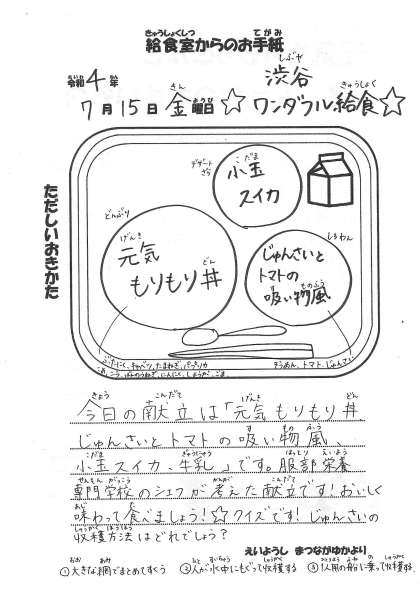 給食室からのお手紙
令和4年
渋谷
7月15日 金曜日 ☆ ワンダフル給食☆
ただしいおきかた
デザートざら
小玉
スイカ
どんぶり
元気
もりもり丼
しるわん
じゅんさいと
トマトの
吸い物風
ぶたにく、キャベツ、たまねぎ、パプリカ
こめ、こう、ばんのうねぎ、にんにく、しょうが、ごま
そうめん、トマト、じゅんさい
今日の献立は「元気もりもり丼、
じゅんさいとトマトの吸い物風、
小玉スイカ、牛乳」です。服部栄養
専門学校のシェフが考えた献立です!おいしく
味わって食べましょう!☆クイズです!じゅんさいの
収穫方法はどれでしょう?
えいようし まつながゆかより
①大きな網でまとめてすくう ②人が水中にもぐって収穫する ③1人用の船に乗って収穫する